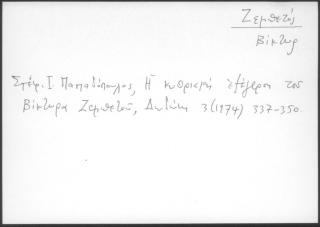 Ζεμπετός
Βίκτωρ
Στέφ. Ι. Παπαδόπουλος, Ἡ κυθριακή ἐξέγερση τοῦ
Βίκτωρα Ζεμπετοῦ, Δωδώνη 3 (1974) 337-350.